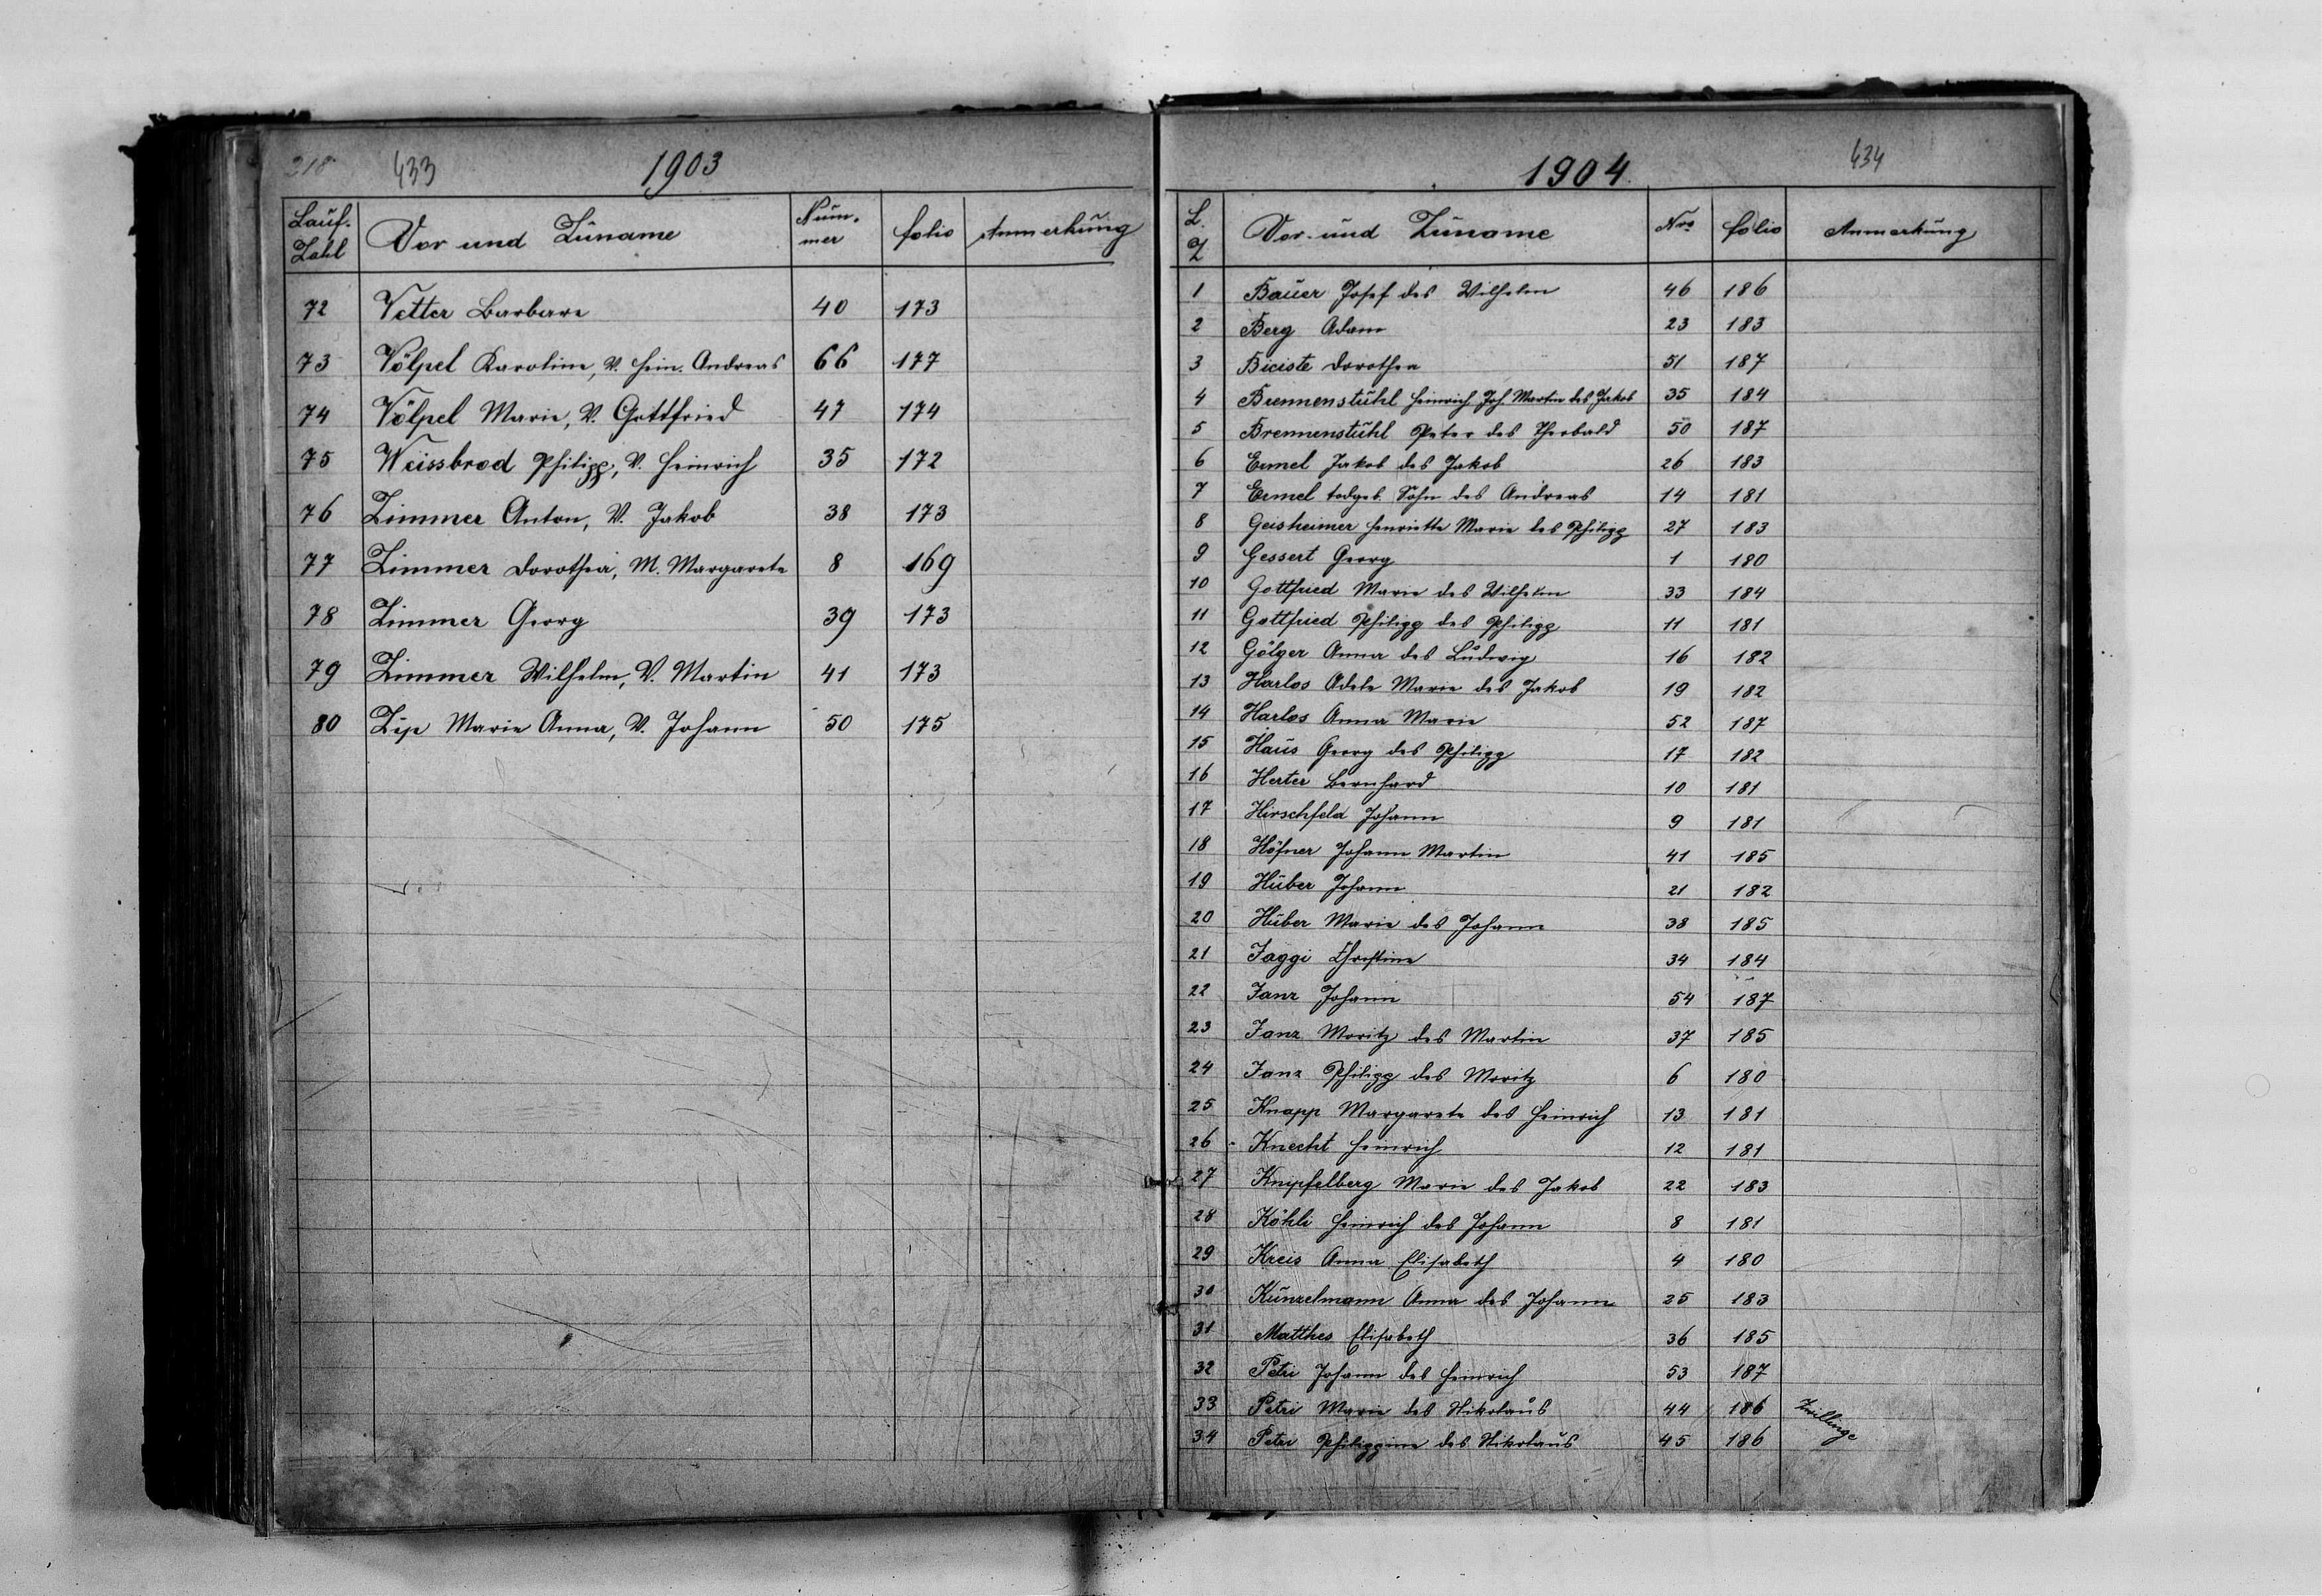 218 433 1903
Lauf. Zahl Vor und Zuname Num-mer folio Anmerkung
72 Vetter Barbara 40 173
73 Völpel Karoline, V. Hein. Andreas 66 177
74 Völpel Marie, V. Gottfried 47 174
75 Weissbrod Philipp, V. Heinrich 35 172
76 Zimmer Anton, V. Jakob 38 173
77 Zimmer Dorothea, M. Margarete 8 169
78 Zimmer Georg 39 173
79 Zimmer Wilhelm, V. Martin 41 173
80 Zip Marie Anna, V. Johann 50 175
1904. 434
L. Z Vor- und Zuname Nro folio Anmerkung
1 Bauer Josef des Wilhelm 46 186
2 Berg Adam 23 183
3 Biciste Dorothea 51 187
4 Brennenstuhl Heinrich Joh. Martin des Jakob 35 184
5 Brennenstuhl Peter des Theobald 50 187
6 Ermel Jakob des Jakob 26 183
7 Ermel todgeb. Sohn des Andreas 14 181
8 Geisheimer Henriette Marie des Philipp 27 183
9 Gessert Georg 1 180
10 Gottfried Marie des Wilhelm 33 184
11 Gottfried Philipp des Philipp 11 181
12 Gölger Anna des Ludwig 16 182
13 Harlos Adele Marie des Jakob 19 182
14 Harlos Anna Marie 52 187
15 Haus Georg des Philipp 17 182
16 Herter Bernhard 10 181
17 Hirschfeld Johann 9 181
18 Höfner Johann Martin 41 185
19 Huber Johann 21 182
20 Huber Marie des Johann 38 185
21 Jaggi Christine 34 184
22 Janz Johann 54 187
23 Janz Moritz des Martin 37 185
24 Janz Philipp des Moritz 6 180
25 Knapp Margarete des Heinrich 13 181
26 Knecht Heinrich 12 181
27 Knipfelberg Marie des Jakob 22 183
28 Köhli Heinrich des Johann 8 181
29 Kreis Anna Elisabeth 4 180
30 Kunzelmann Anna des Johann 25 183
31 Matthes Elisabeth 36 185
32 Petri Johann des Heinrich 53 187
33 Petri Marie des Nikolaus 44 186 Zwillinge
34 Petri Philippine des Nikolaus 45 186